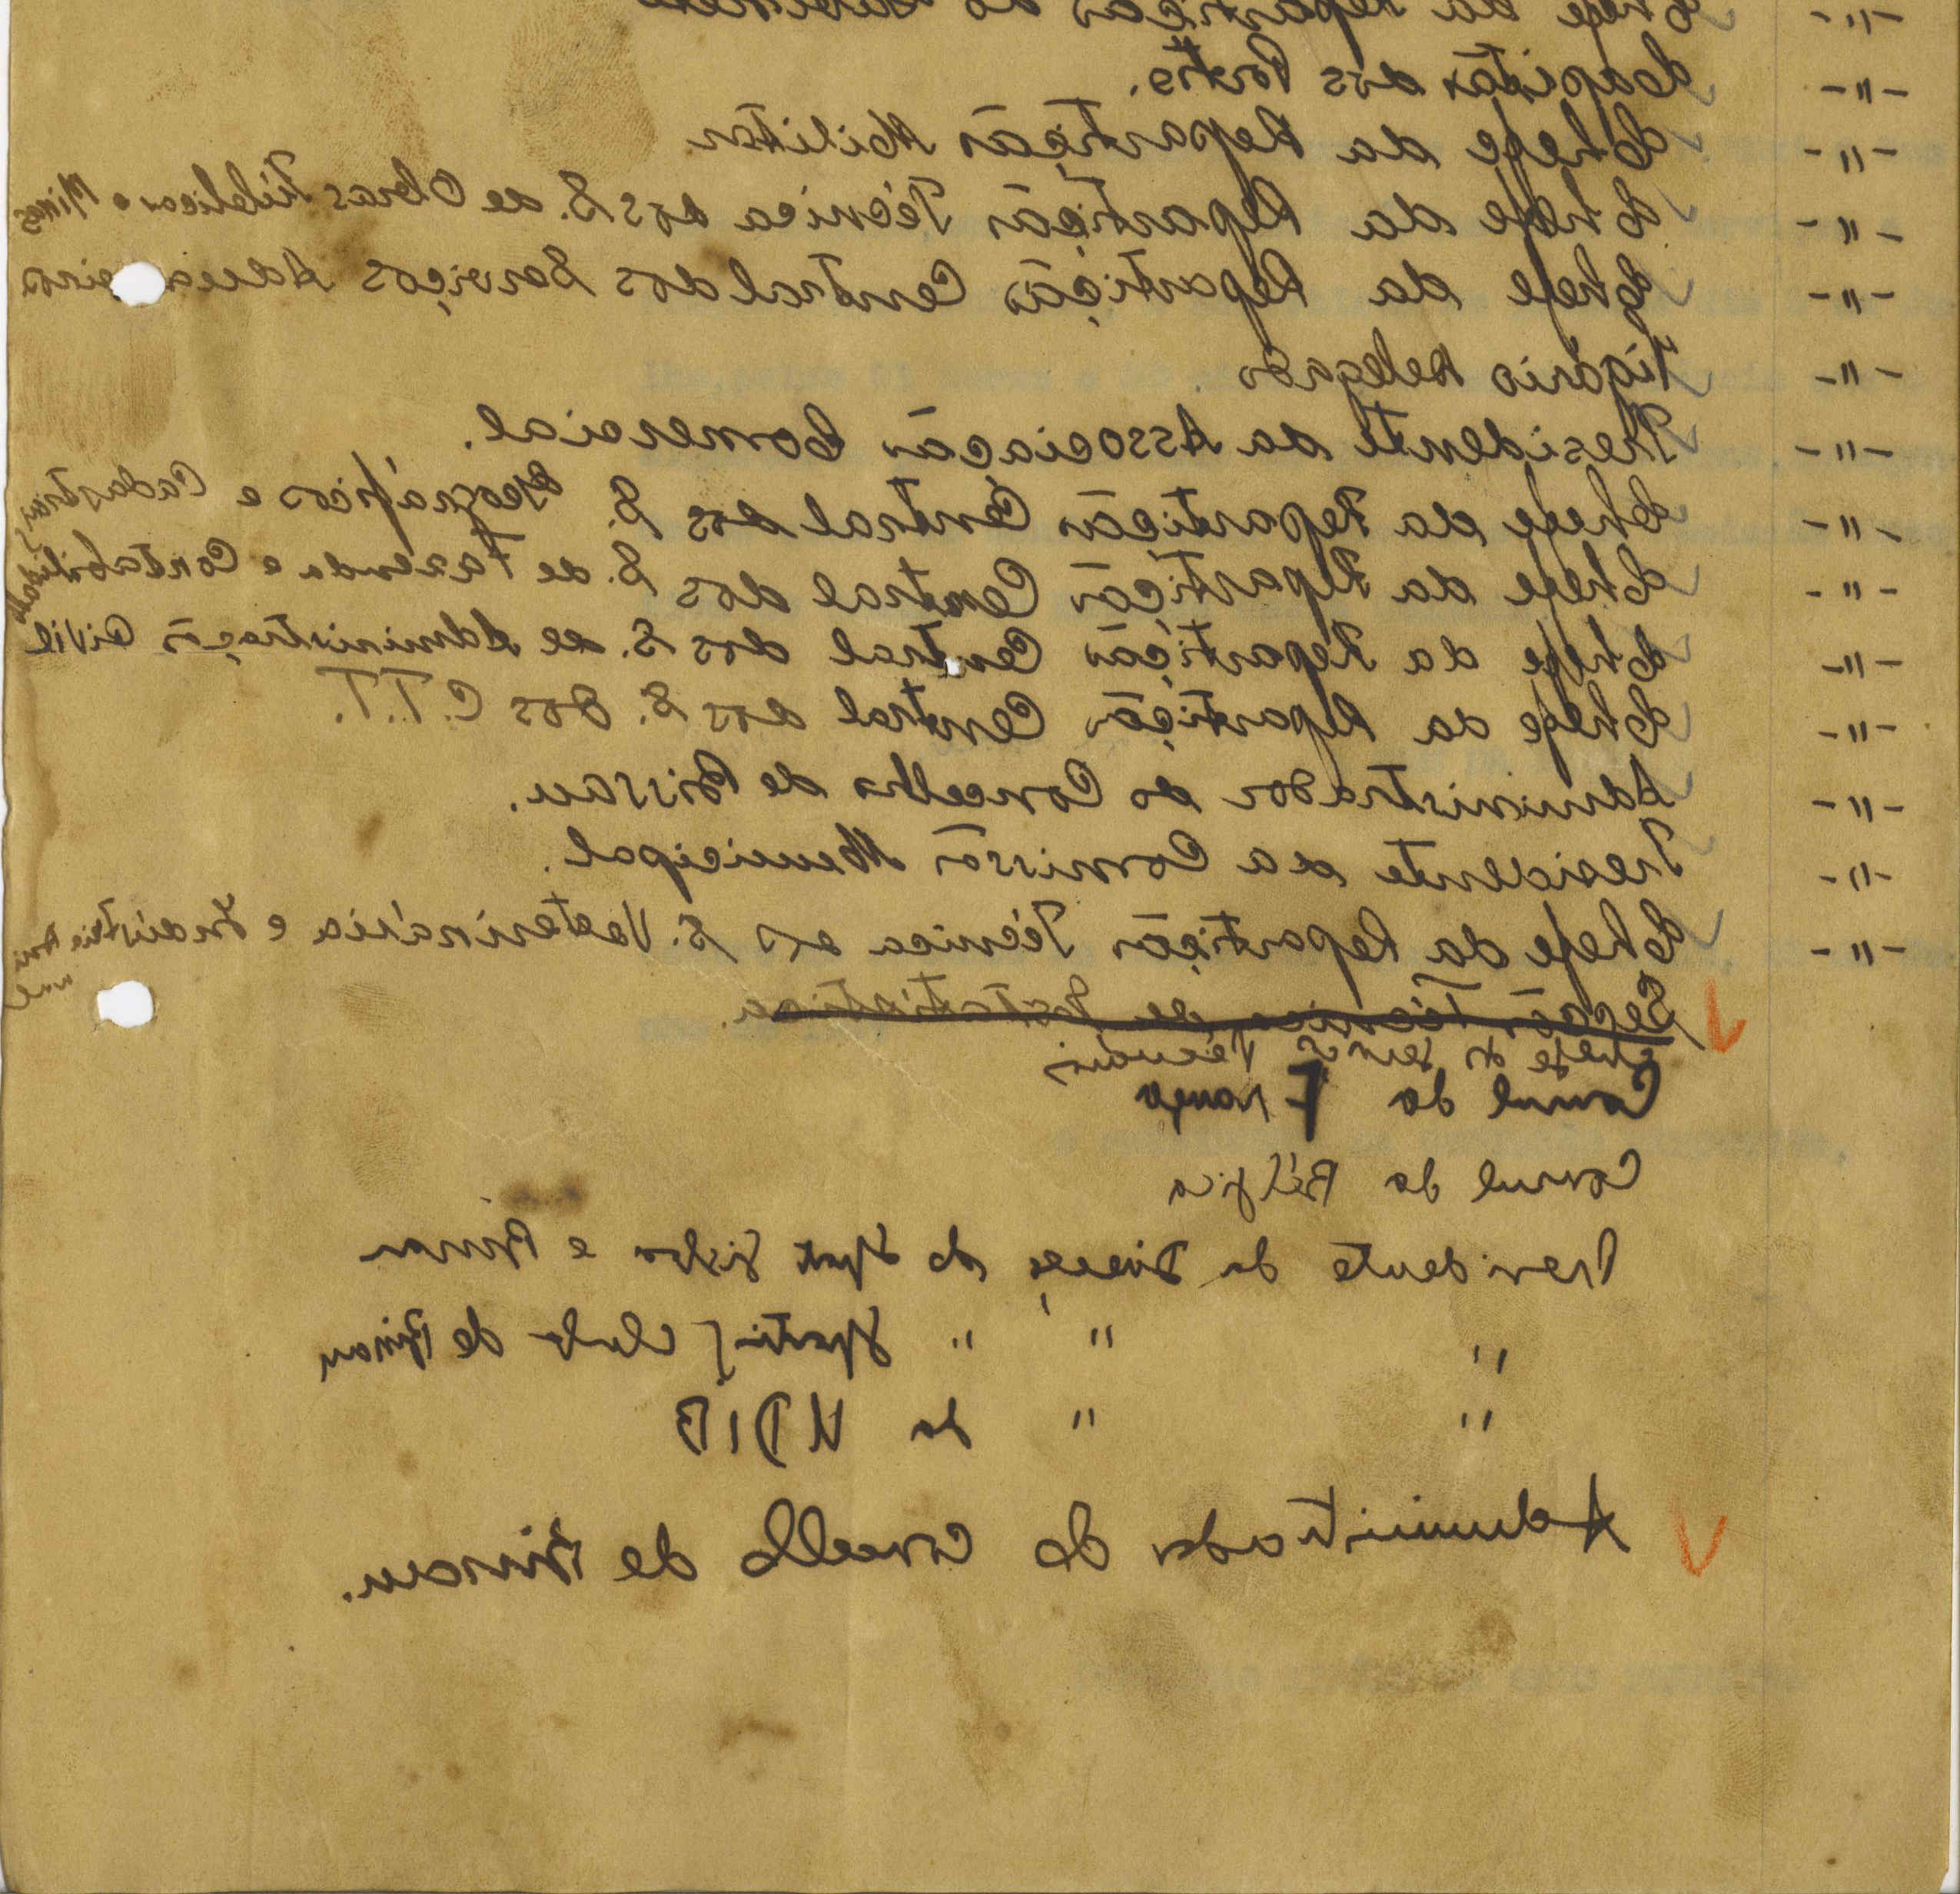 -"- Chefe da Repartição do Gabinete
-"- Capitão dos Portos.
-"- Chefe da Repartição Militar
-"- Chefe da Repartição Técnica dos S. de Obras Públicas e Minas
-"- Chefe da Repartição Central dos Serviços Aduaneiros
-"- Vigário Delegado
-"- Presidente da Associação Comercial.
-"- Chefe da Repartição Central dos S. Geográficos e Cadastrais
-"- Chefe da Repartição Central dos S. de Fazenda e Contabilidade
-"- Chefe da Repartição Central dos S. de Administração Civil
-"- Chefe da Repartição Central dos S. dos C.T.T.
-"- Administrador do Concelho de Bissau.
-"- Presidente da Comissão Municipal.
-"- Chefe da Repartição Técnica dos S. Veterinária e Indústria Animal
Secção Técnica de Estatística.
Chefe do
Consul da França
Consul da Bélgica
Presidente da Direcção do Sport Lisboa e Bissau
" " " Sporting Club de Bissau
" " da UDIB
Administrador do Concelho de Bissau.